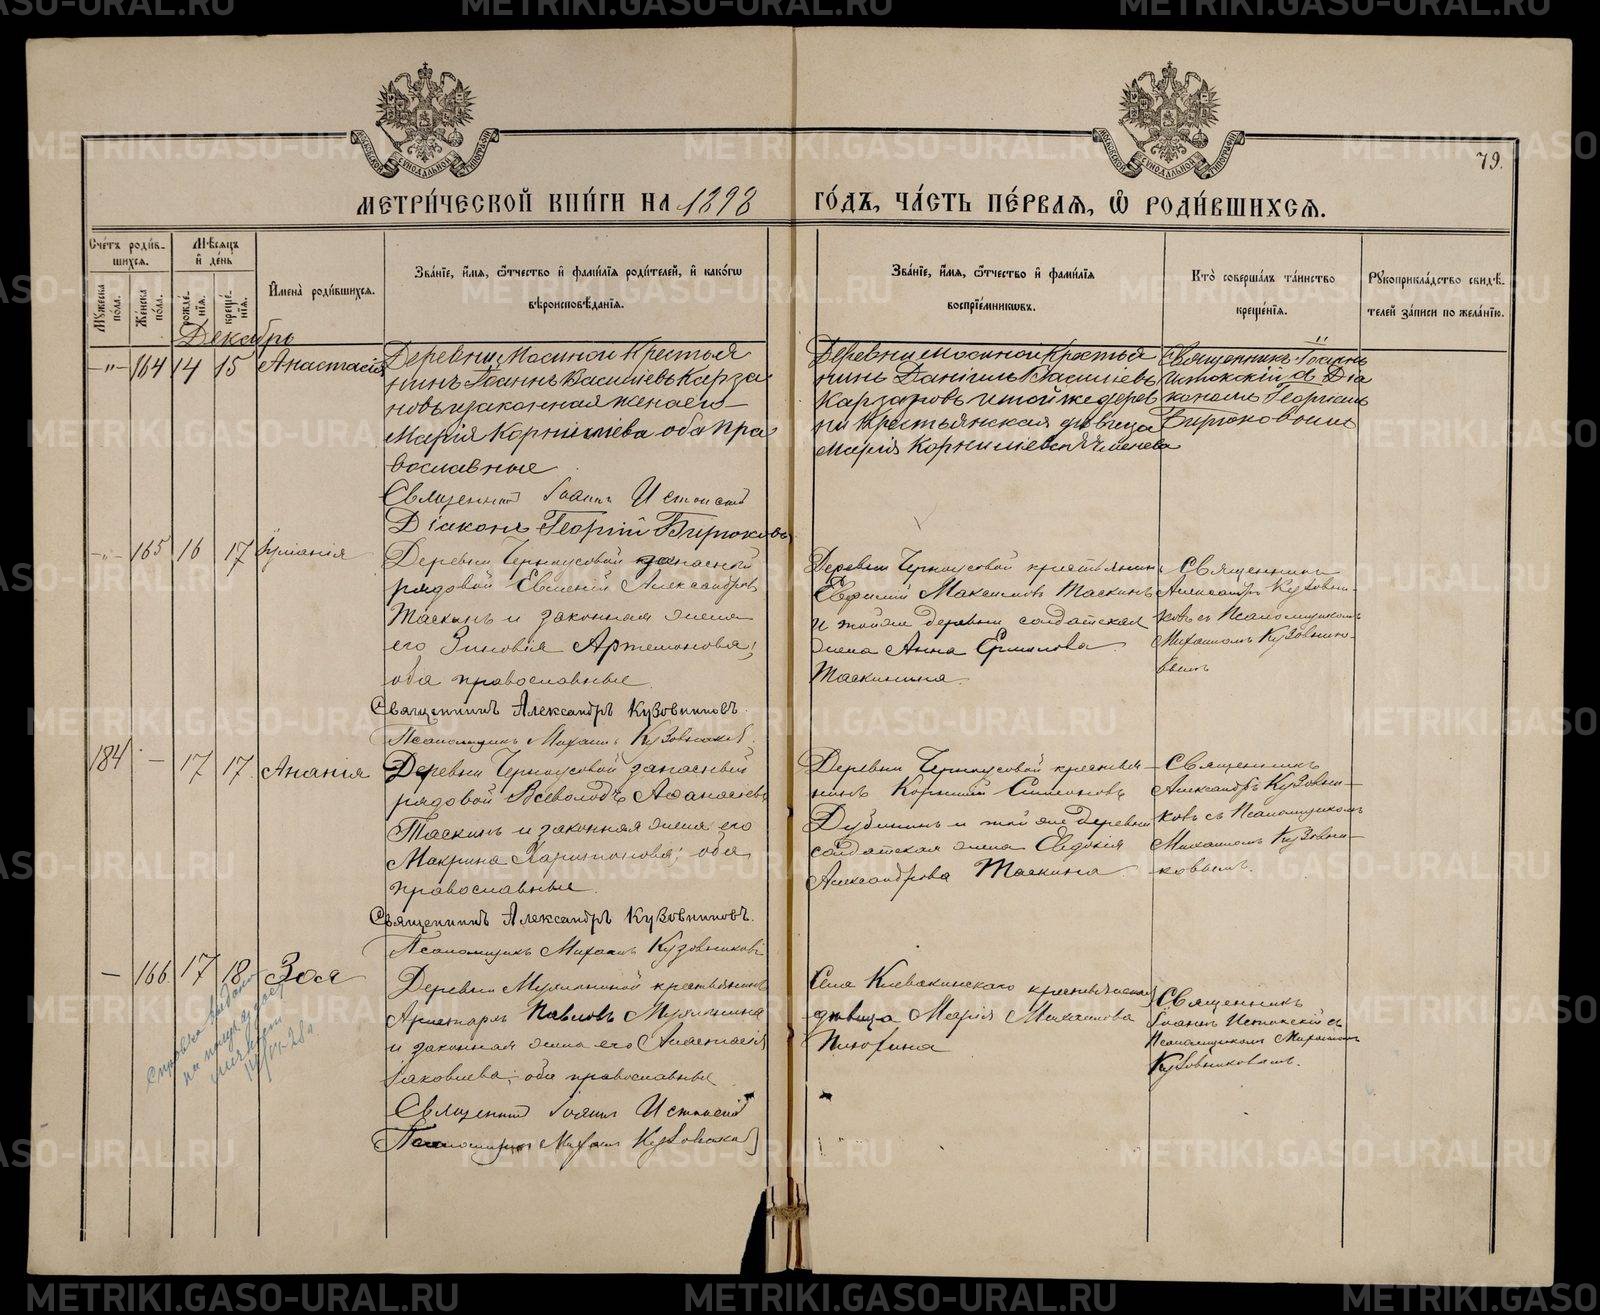 79.
МЕТРИ́ЧЕСКОЙ КНИ́ГИ НА 1898 ГО́ДЪ, ЧА́СТЬ ПЕ́РВАЯ, Ѿ РОДИ́ВШИХСЯ.
Сче́тъ роди́в-
шихся.
Мꙋ́жеска по́ла.
Же́нска по́ла.
Мѣ́сяцъ
и҆ де́нь
рожде́-
нія.
креще́-
нія.
И҆мена̀ роди́вшихся.
Зва́ніе, и҆́мя, ѻ҆́тчество и҆ фами́лія роди́телей, и҆ како́гѡ
вѣроисповѣ́данія.
Зва́ніе, и҆́мя, ѻ҆́тчество и҆ фами́лія
воспріе́мниковъ.
Кто̀ соверша́лъ та́инство
креще́нія.
Рꙋкоприкла́дство свидѣ́-
телей за́писи по жела́нію.
Декабрь
-"- 164 14 15 Анастасія
Деревни Мосиной Крестья
нинъ Іоаннъ Васильевъ Карза
новъ и законная жена его
Марія Корнильева оба пра
вославные
Священникъ Іоаннъ Истокскій
Діаконъ Георгій Бирюковъ
Деревни Мосиной Крестья
нинъ Даніилъ Васильевъ
Карзановъ и той же дерев
ни крестьянская дѣвица
Марія Корнильева
Священникъ Іоаннъ
Истокскій съ Діа
кономъ Георгіемъ
Бирюковымъ
-"- 165 16 17 Іуліанія
Деревни Черноусовой запасной
рядовой Евгеній Александровъ
Таскинъ и законная жена
его Зиновія Артемонова;
оба православные.
Священникъ Александръ Кузовниковъ.
Псаломщикъ Михаилъ Кузовниковъ.
Деревни Черноусовой крестьянинъ
Ефимій Максимовъ Таскинъ
и той же деревни солдатская
жена Анна Ермилова
Таскинина.
Священникъ
Александръ Кузовни-
ковъ съ Псаломщикомъ
Михаиломъ Кузовнико-
вымъ
184 - 17 17 Ананія
Деревни Черноусовой запасный
рядовой Всеволодъ Афанасьевъ
Таскинъ и законная жена его
Макрина Харитонова; оба
православные.
Священникъ Александръ Кузовниковъ.
Псаломщикъ Михаилъ Кузовниковъ
Деревни Черноусовой крестья-
нинъ Корнилий Симоновъ
Дубининъ и той же деревни
солдатская жена Евдокія
Александрова Таскина.
Священникъ
Александръ Кузовни-
ковъ съ Псаломщикомъ
Михаиломъ Кузовни-
ковымъ.
- 166 17 18 Зоя
Деревни Мухлыниной крестьянинъ
Аристархъ Павловъ Мухлынинъ
и законная жена его Анастасія
Іаковлева; оба православные
Священникъ Іоаннъ Истокскій
Псаломщикъ Михаилъ Кузовниковъ
Села Клевакинскаго крестьянская
дѣвица Марія Михаилова
Священникъ
Іоаннъ Истокскій съ
Псаломщикомъ Михаиломъ
Кузовниковымъ.
Справка выдана